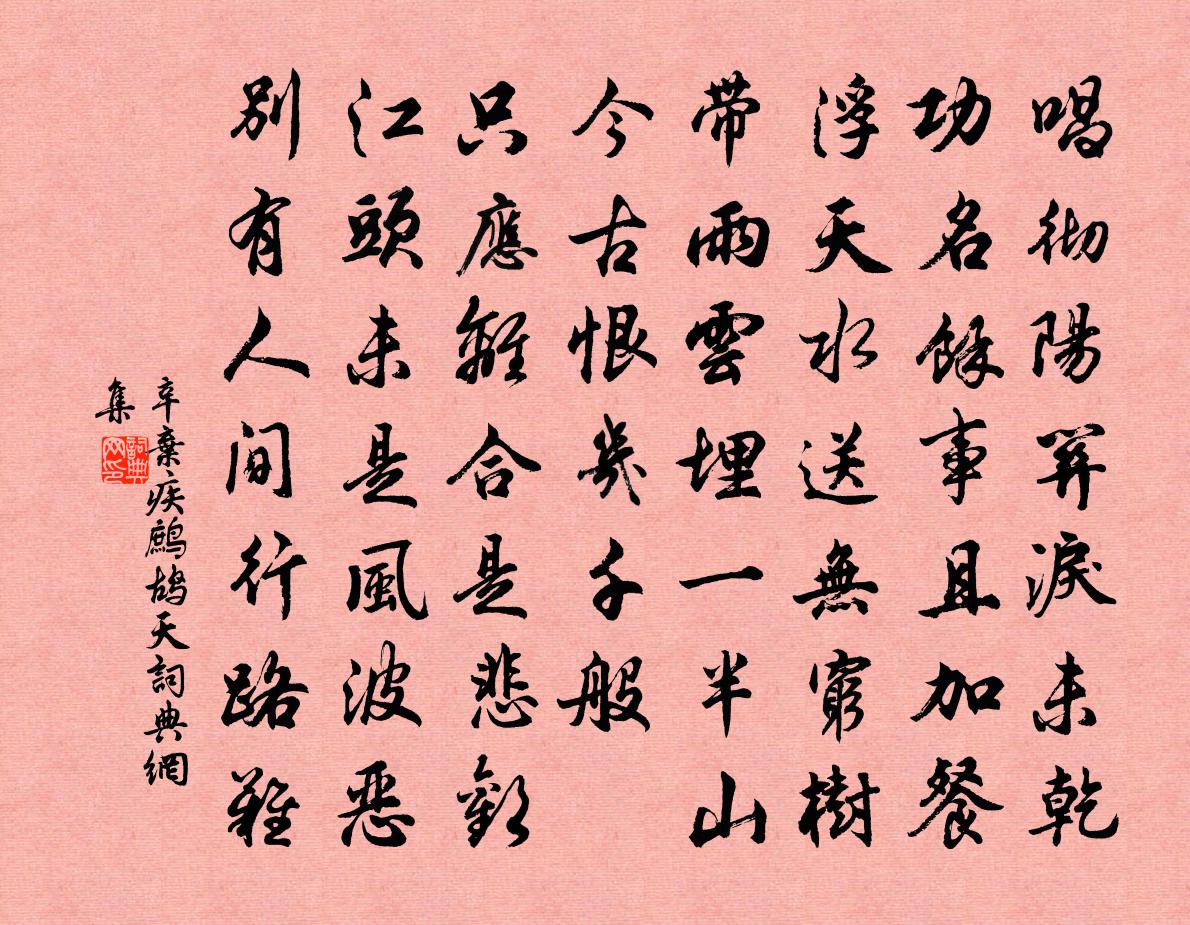 唱彻陽關淚未乾
功名餘事且加餐
浮天水送無窮樹
帶雨雲埋一半山
今古恨幾千般
只應離合是悲歡
江頭未是風波惡
別有人間行路難
辛棄疾鷓鴣天詞典網
集
詞典網印